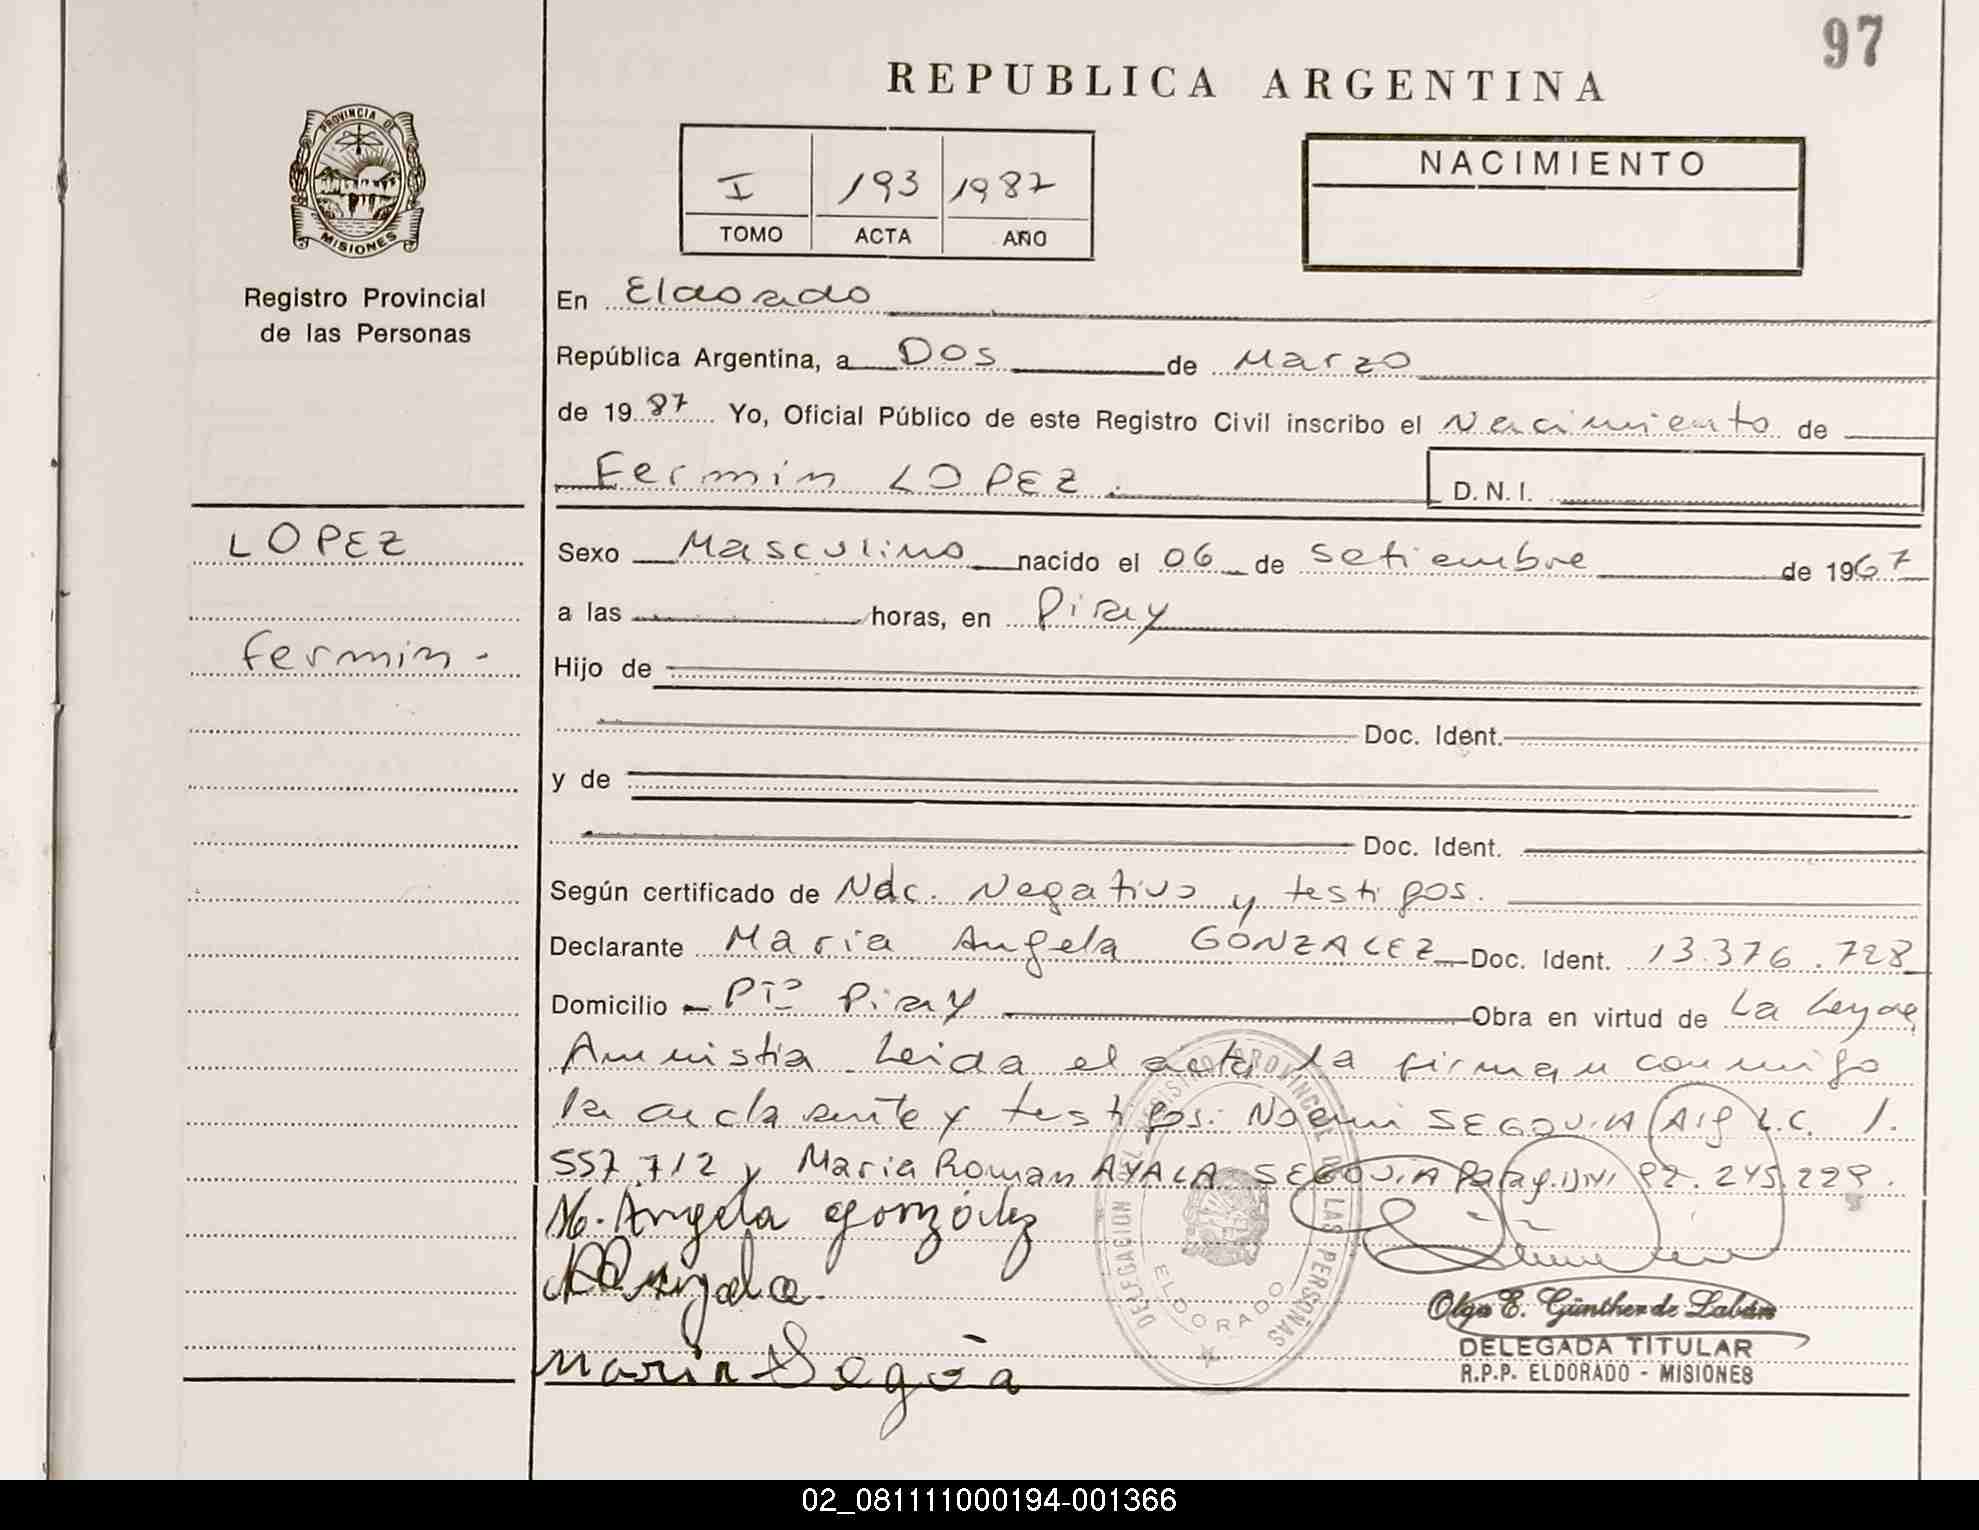 97
REPUBLICA ARGENTINA
PROVINCIA DE
MISIONES
Registro Provincial
de las Personas
I 193 1987
TOMO ACTA AÑO
NACIMIENTO
En Eldorado
República Argentina, a Dos de Marzo
de 1987 Yo, Oficial Público de este Registro Civil inscribo el Nacimiento de
Fermin LOPEZ.
D.N.I.
LOPEZ
Fermin.-
Sexo Masculino nacido el 06 de Setiembre de 1967
a las horas, en Piray
Hijo de
Doc. Ident.
y de
Doc. Ident.
Según certificado de Nac. Negativo y testigos.
Declarante Maria Angela GONZALEZ Doc. Ident. 13.376.728
Domicilio Pto Piray Obra en virtud de La Ley de
Amnistia. Leida el acta la firman conmigo
la declarante y testigos: Noemi SEGOVIA Arg L.C. 1.
557.712 y Maria Roman AYALA SEGOVIA Parag. DNI 92.245.229.
M. Angela González
Maria Segovia
DELEGACION DEL REGISTRO PROVINCIAL DE LAS PERSONAS
ELDORADO
Olga E. Günther de Labán
DELEGADA TITULAR
R.P.P. ELDORADO - MISIONES
02_081111000194-001366